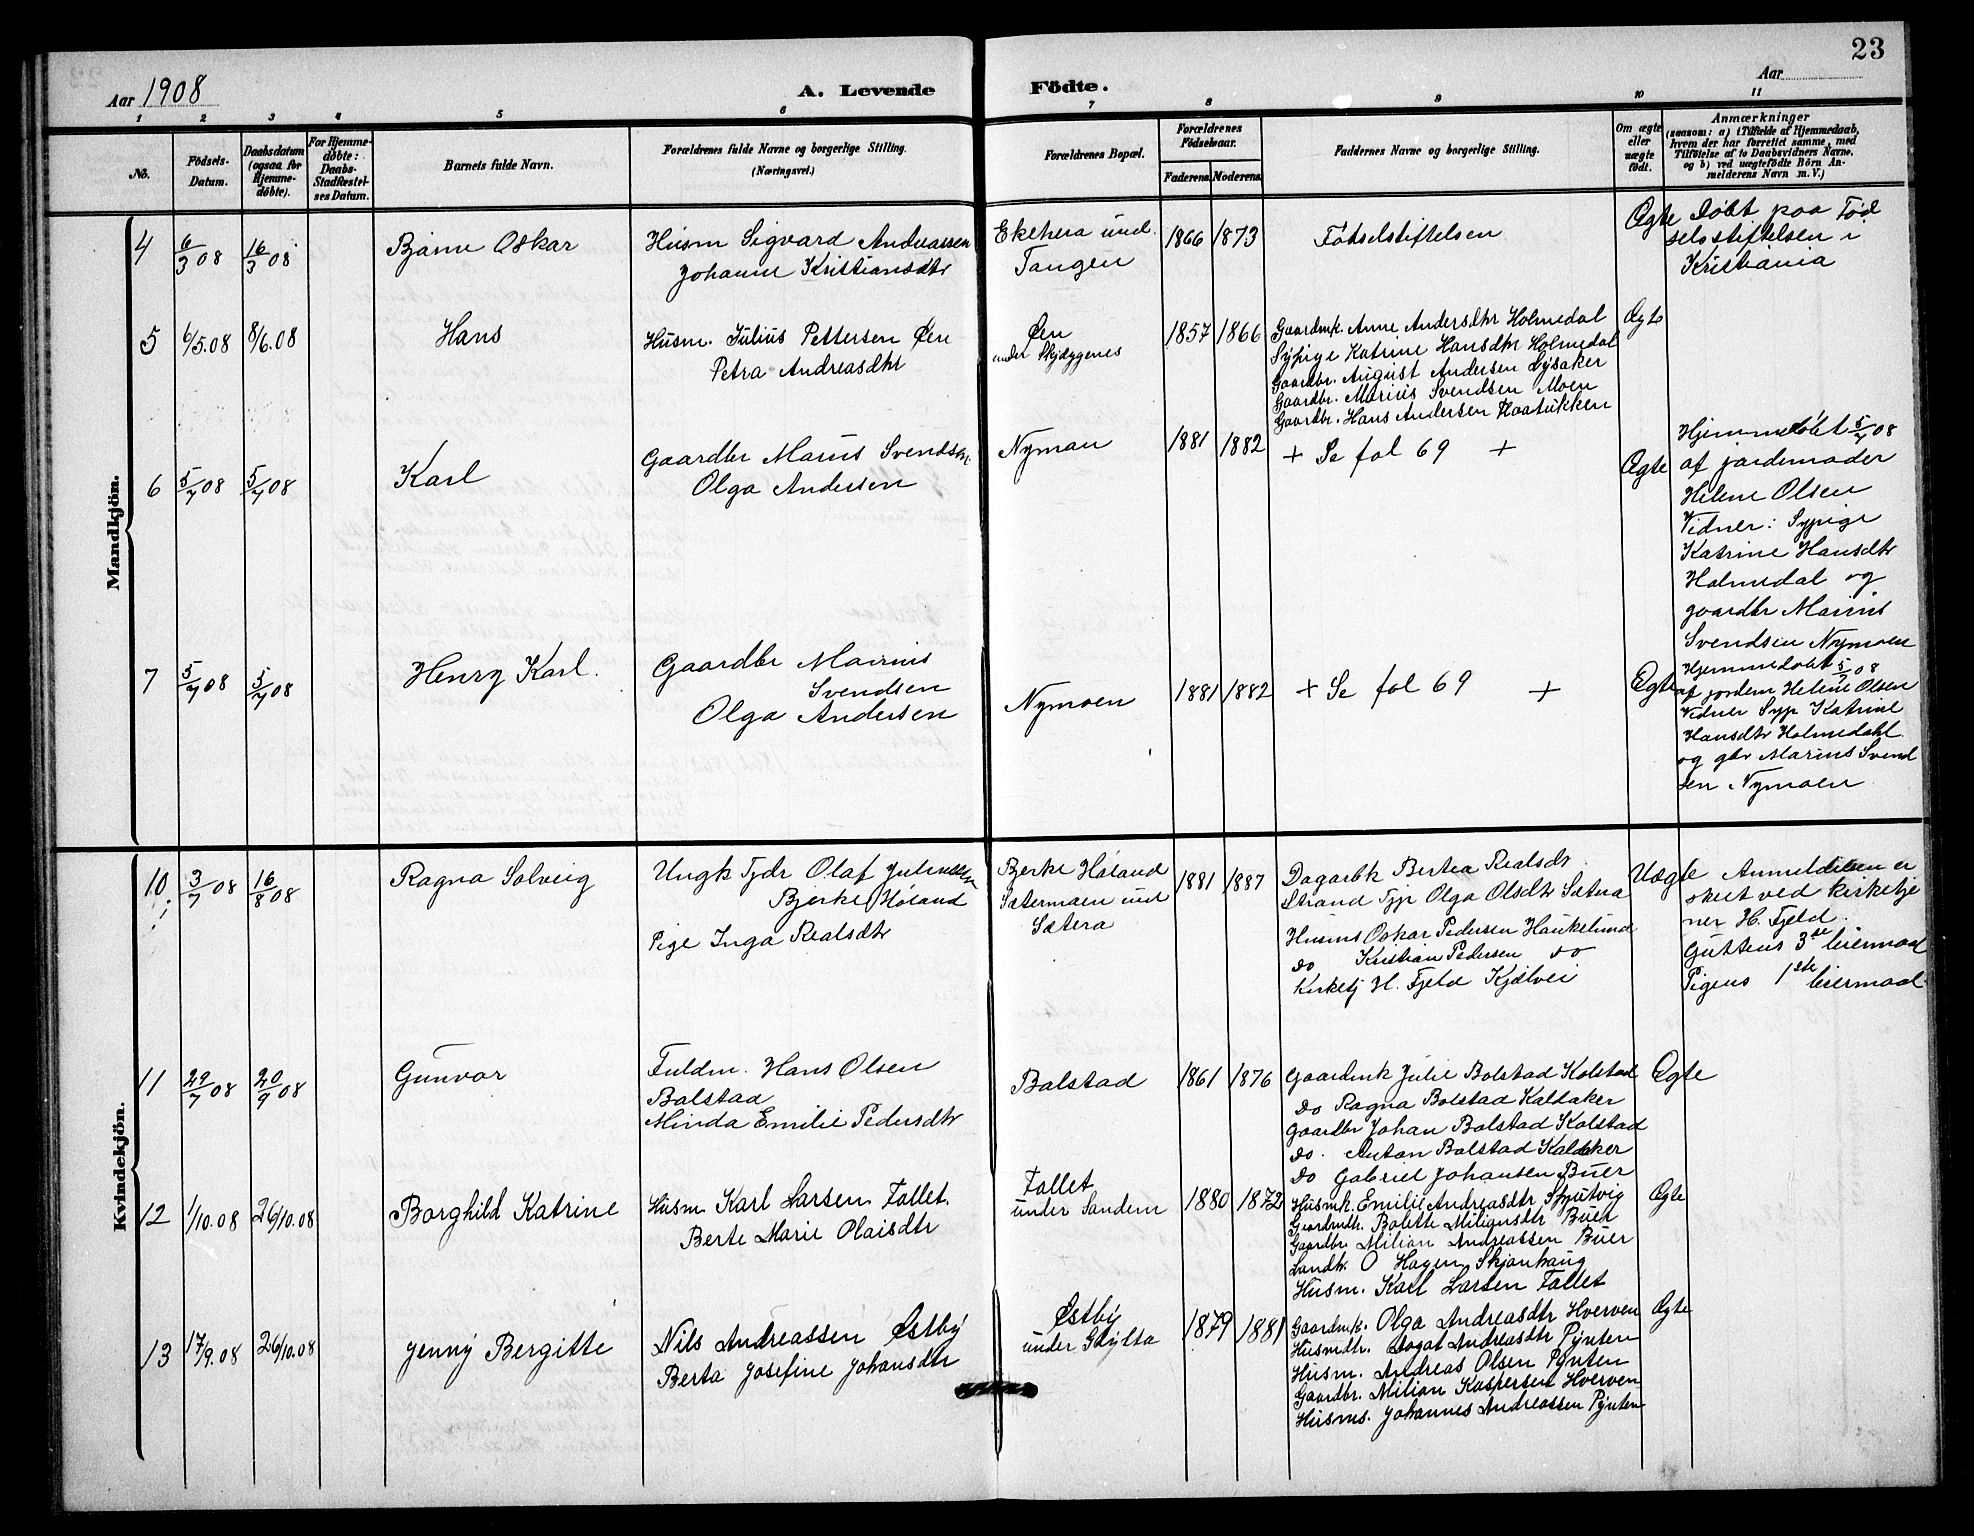 23
Aar 1908
A. Levende
Födte.
Aar
1 2 3 4 5 6 7 8 9 10 11
No.
Födsels-Datum.
Daabsdatum (ogsaa for Hjemme-döbte).
For Hjemme-döbte: Daabs-Stadfæstelses Datum.
Barnets fulde Navn.
Forældrenes fulde Navne og borgerlige Stilling.
(Næringsvei.)
Forældrenes Bopæl.
Forældrenes Födselsaar.
Faderens. Moderens.
Faddernes Navne og borgerlige Stilling.
Om ægte eller uægte födt.
Anmærkninger
(saasom: a) i Tilfælde af Hjemmedaab,
hvem der har forrettet samme, med
Tilföielse af to Daabsvidners Navne,
og b) ved uægtefödte Börn An-
melderens Navn m. V.)
Mandkjön.
4 6/3 08 16/3 08 Bjarne Oskar
Husm Sigvard Andreassen
Johanne Kristiansdtr
Ekehera und.
Tangen
1866 1873
Fødselstiftelsen
Ægte
Døbt paa Fød
selsstiftelsen i
Kristiania
5 6/5.08 8/6.08 Hans
Husm. Julius Pettersen Øen
Petra Andreasdtr
Øen
under Skjæggenes
1857 1866
Gaardmk. Anne Andersdtr Holmedal
Sypige Katrine Hansdtr Holmedal
Gaardbr. August Andersen Lysaker
Gaardbr. Marius Svendsen Moen
Gaardbr. Hans Andersen
Ægte
6 5/7 08 5/7 08 Karl
Gaardbr Marius Svendsen
Olga Andersen
Nymoen
1881 1882
+ Se fol 69 +
Ægte
Hjemmedøbt 5/7 08
af jordemoder
Helene Olsen
Vidner: Sypige
Katrine Hansdtr
Holmedal og
gaardbr Marius
Svendsen Nymoen
7 5/7 08 5/7 08 Henry Karl.
Gaardbr Marius
Svendsen
Olga Andersen
Nymoen
1881 1882
+ Se fol 69 +
Ægte
Hjemmedøbt 5/7 08
af jordem Helene Olsen
Vidner Syp Katrine
Hansdtr Holmedahl
og gbr Marius Svend
sen Nymoen
Kvindekjön.
10 3/7 08 16/8 08 Ragna Solveig
Ungk Tjdr Olaf Juliussen
Bjerke Høland
Pige Inga Realsdtr
Bjerke Høland
Sætermoen und
Sætera
1881 1887
Dagarbk Bertea Realsdtr
Strand Tjp Olga Olsdtr Sætera
Husms Oskar Pedersen Haukelund
Do Kristian Pedersen do
Kirketj H. Fjeld Kjølvei
Uægte
Anmeldelsen er
skeet ved kirketje
ner H. Fjeld.
Guttens 3die leiermaal
Pigens 1ste leiermaal
11 29/7 08 20/9 08 Gunvor
Fuldm. Hans Olsen
Bolstad
Minda Emilie Pedersdtr
Bolstad
1861 1876
Gaardmk Julie Bolstad Kolstad
Do Ragna Bolstad Kaltaker
Gaardbr Johan Bolstad Kolstad
Do. Anton Bolstad Kaldaker
Do Gabriel Johansen Buer
Ægte
12 1/10.08 26/10.08 Borghild Katrine
Husm Karl Larsen Fallet.
Berte Marie Olaisdtr
Fallet
under Sandem
1880 1872
Husmk. Emilie Andreasdtr Spyutvig
Gaardmdtr. Bolette Miliansdtr Buer
Gaardbr. Milian Andreassen Buer
Landh. O Hagen Skjønhaug
Husm. Karl Larsen Fallet
Ægte
13 17/9.08 26/10.08 Jenny Bergitte
Nils Andreassen Østby
Berta Josefine Johansdtr
Østby
under
1879 1881
Gaardmk. Olga Andreasdtr Hverven
Husmdtr. Dagat Andreasdtr Pynten
Husm. Andreas Olsen Pynten
Gaardbr. Milian Kaspersen Hverven
Husms. Johannes Andreassen Pynten
Ægte